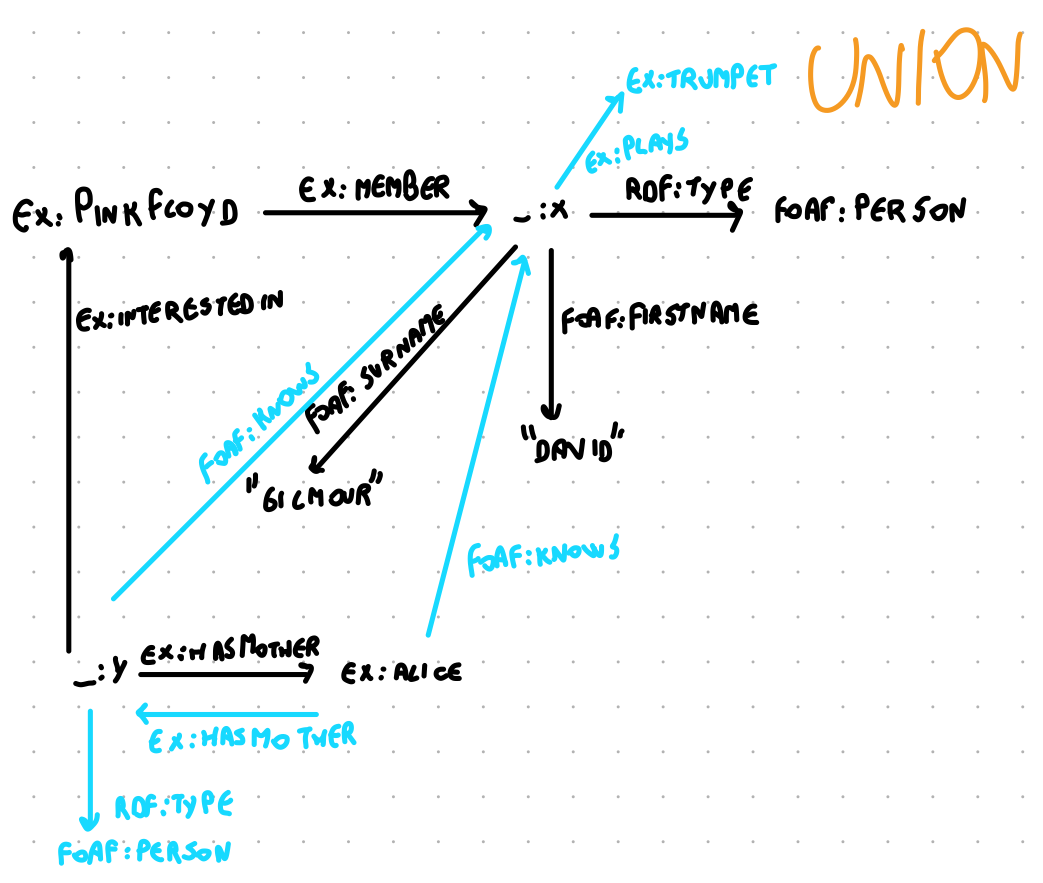 UNION
EX:TRUMPET
EX:PLAYS
EX:PINKFLOYD
EX:MEMBER
_:X
RDF:TYPE
FOAF:PERSON
EX:INTERESTEDIN
FOAF:KNOWS
FOAF:SURNAME
FOAF:FIRSTNAME
"DAVID"
"GILMOUR"
FOAF:KNOWS
_:Y
EX:HASMOTHER
EX:ALICE
EX:HASMOTHER
RDF:TYPE
FOAF:PERSON